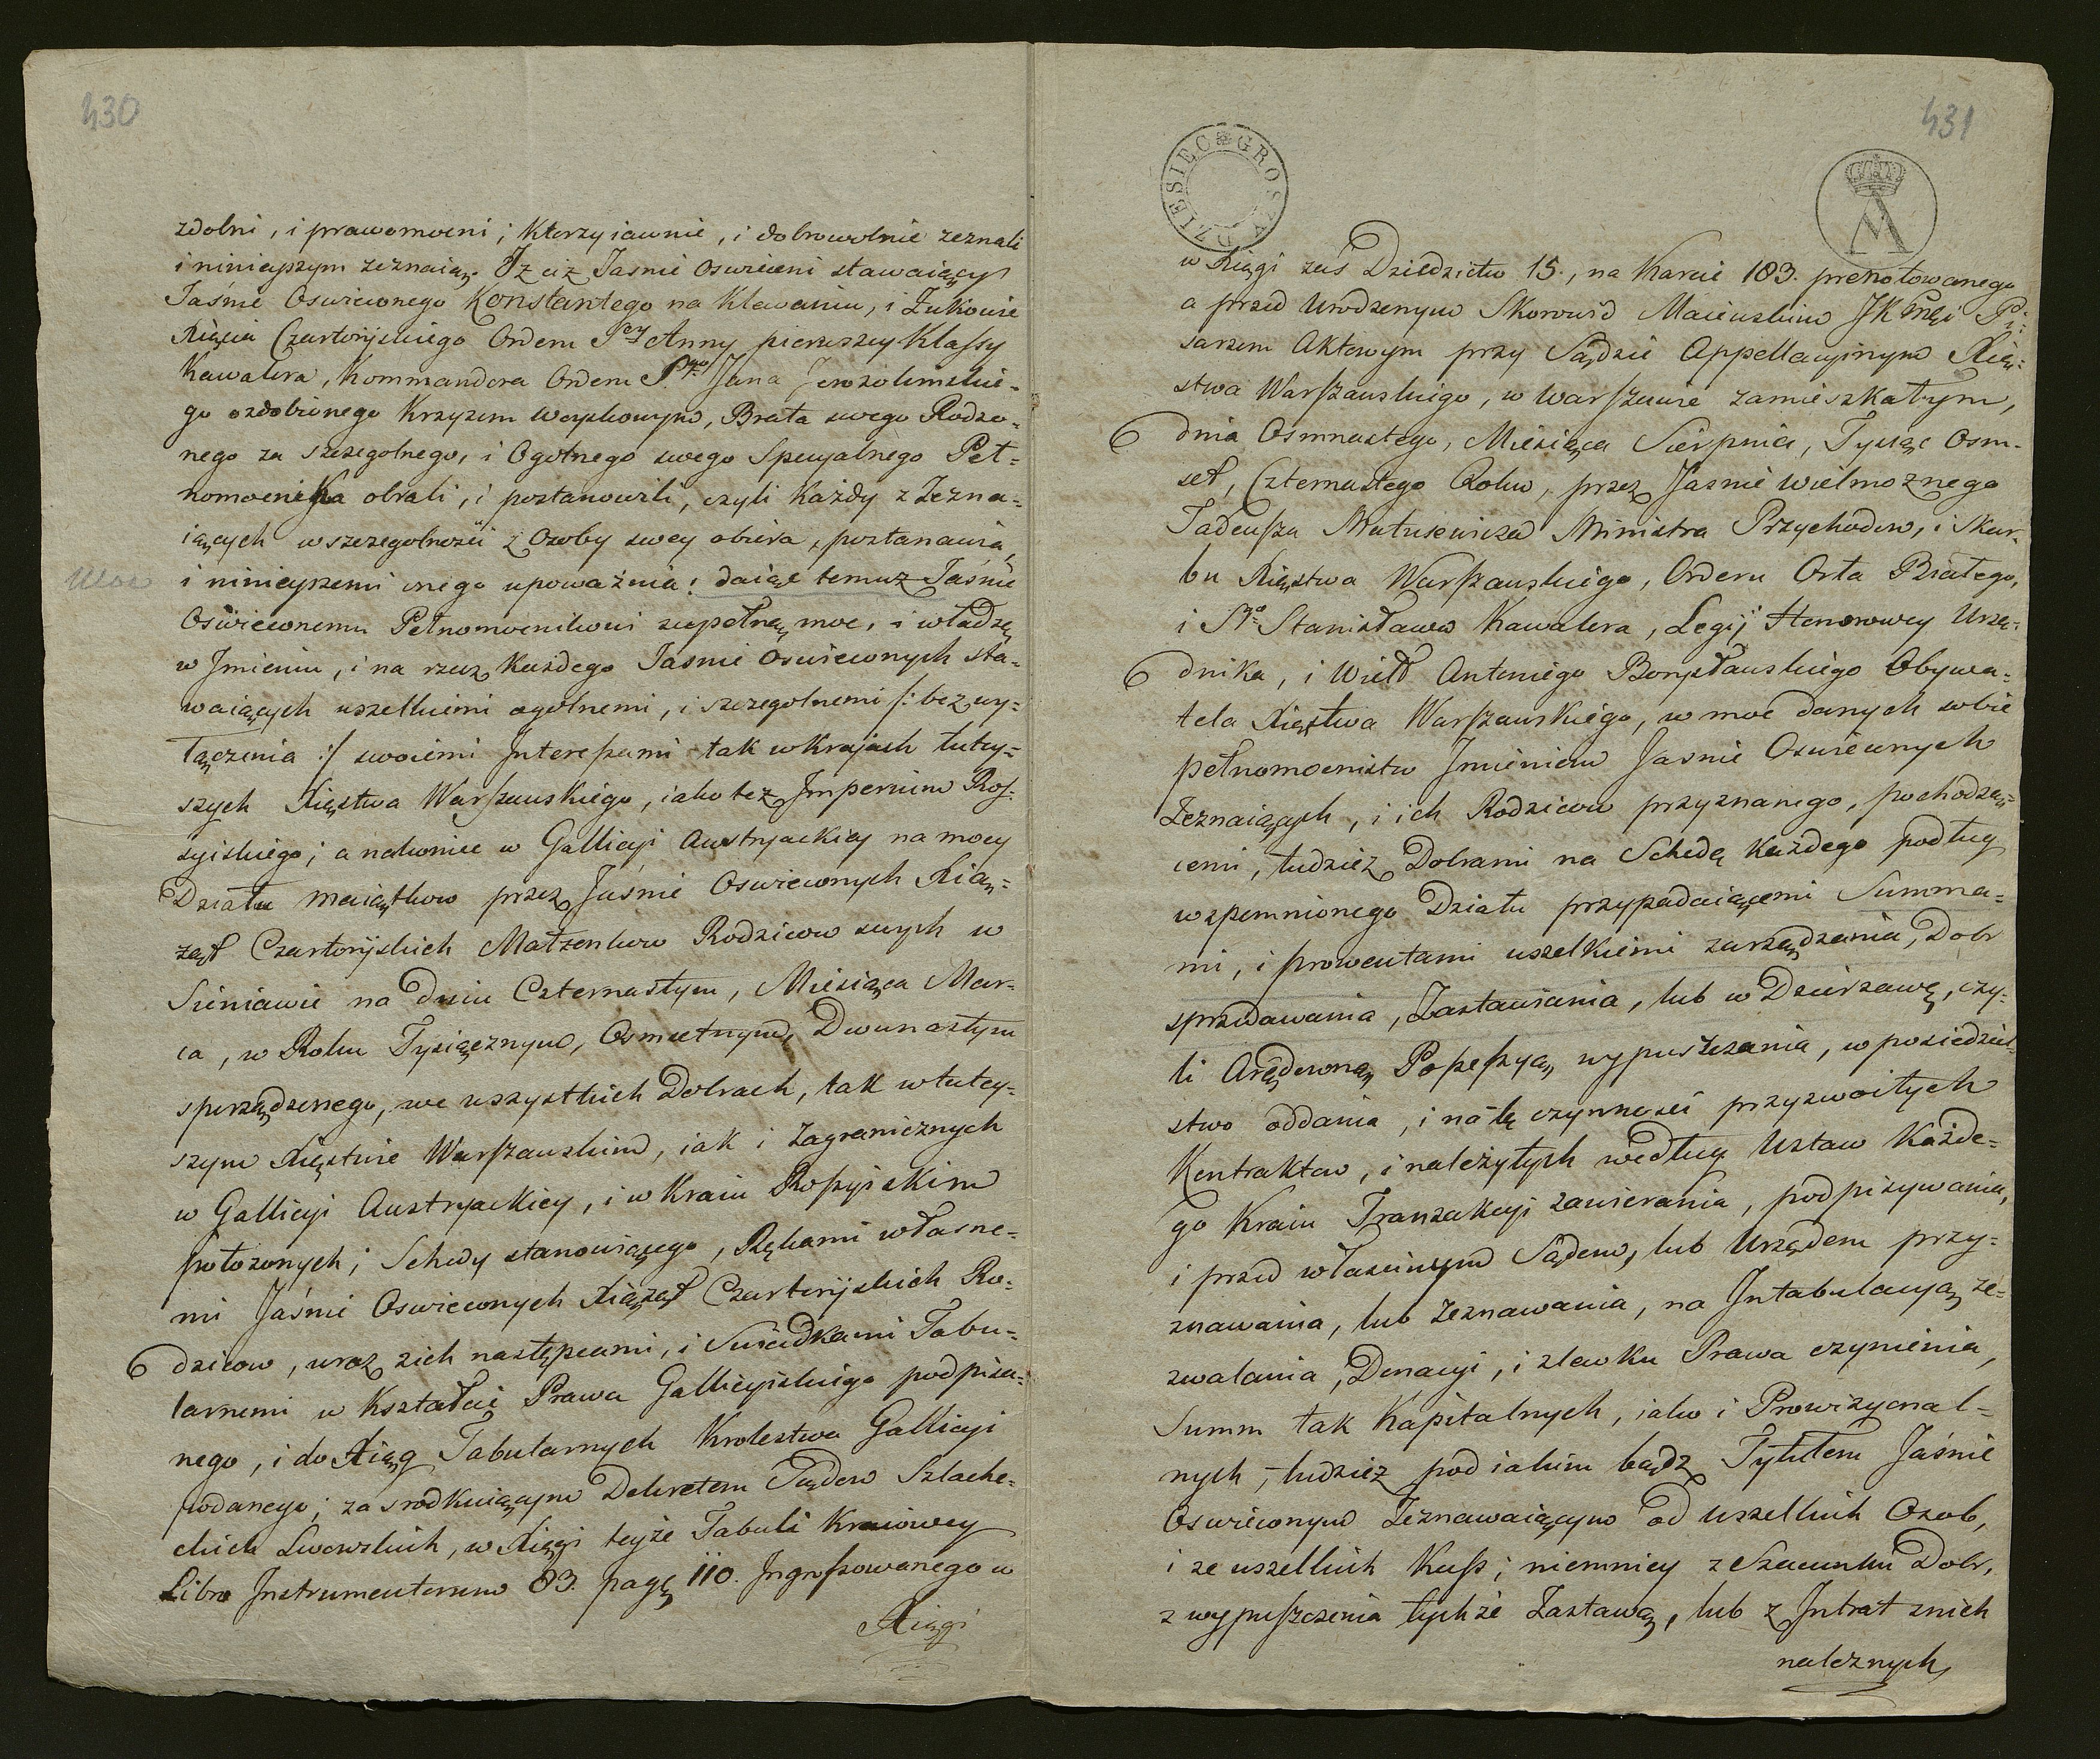 430
zdolni, i prawomocni; Ktorzy iawnie, i dobrowolnie zeznali
i ninieyszym zeznaią. Iz ciz Jasnie Oswieceni stawaiący
Jaśnie Oswieconego Konstantego na Klewaniu, i Żukowie
Xięcia Czartoryskiego Orderu S.ey Anny pierwszey Klassy
Kawalera, Kommandora Orderu S.go Jana Jerozolimskie-
go ozdobionego Krzyzem woyskowym, Brata swego Rodzo-
nego za szczegolnego, i Ogolnego swego Specyalnego Peł=
nomocnika obrali, i postanowili, czyli Każdy z Zezna=
iących w szczegolności z Osoby swey obiera, postanawia,
i ninieyszemi onego upoważnia: daiąc temuz Jaśnie
Oświeconemu Pełnomocnikowi zupełną moc, i władzę
w Imieniu, i na rzecz Każdego Jasnie Oswieconych sta=
waiących wszelkiemi ogolnemi, i szczegolnemi /: bez wy=
łączenia :/ swoiemi Interessami tak w Krajach tutey=
szych Xięstwa Warszawskiego, iako tez Imperium Ros=
syiskiego; a nakoniec w Gallicyi Austryackiey na mocy
Działu maiątkow przez Jaśnie Oswieconych Xią=
ząt Czartoryskich Małzonkow Rodzicow swych w
Sieniawie na dniu Czternastym, Miesiąca Mar=
ca, w Roku Tysiącznym, Osmsetnym, Dwunastym
sporządzonego, we wszystkich Dobrach, tak w tutey=
szym Xięstwie Warszawskim, iak i Zagranicznych
w Gallicyi Austryackiey, i w Kraiu Rossyiskim
położonych; Schedy stanowiącego, Rękami własne=
mi Jaśnie Oswieconych Xiąząt Czartoryskich Ro=
dzicow, wraz zich następcami, i Swiadkami Tabu=
larnemi w Kształcie Prawa Gallicyiskiego podpisa=
nego, i do Xiąg Tabularnych Krolestwa Gallicyi
podanego; za srodkuiącym Dekretem Sądow Szlache=
ckich Lwowskich, w Xięgi teyże Tabuli Kraiowey
Libro Instrumentorum 83. pagę 110. Ingrossowanego w
Xięgi
DZIESIEC GROSZY
431
w Xięgi zaś Dziedzictw 15., na Karcie 183. prenotowanego
a przed Urodzonym Skorowid Maiewskim JKMci Pi=
sarzem Aktowym przy Sądzie Appellacyinym Xię=
stwa Warszawskiego, w Warszawie zamieszkałym,
dnia Osmnastego, Miesiąca Sierpnia, Tysiąc Osm=
set, Czternastego Roku, przez Jasnie Wielmoznego
Tadeusza Matusewicza Ministra Przychodow, i Skar=
bu Xięstwa Warszawskiego, Orderu Orła Białego,
i S.go Stanisława Kawalera, Legij Honorowey Urzę=
dnika, i Antoniego Borysławskiego Obywa=
tela Xięstwa Warszawskiego, w moc danych sobie
pełnomocnistw Imieniem Jasnie Oswieconych
Zeznaiących, i ich Rodzicow przyznanego, pochodzą=
cemi, tudziez Dobrami na Schedę Każdego podług
wspomnionego Działu przypadaiącemi Summa=
mi, i prowentami wszelkiemi zarządzania, Dobr
sprzedawania, Zastawiania, lub w Dzierzawę, czy=
li Arędowną Possessyą wypuszczania, w posiedziel=
stwo oddania, i na tę czynności przyzwoitych
Kontraktow, i należytych według Ustaw Każde=
go Kraiu Tranzakcyi zawierania, podpisywania,
i przed właściwym Sądem, lub Urzędem przy=
znawania, lub Zeznawania, na Intabulacyą ze=
zwalania, Donacyi, i zlewku Prawa czynienia,
Summ tak Kapitalnych, iako i Prowizyonal=
nych, tudziez pod iakim bądz Tytułem Jaśnie
Oswieconym Zeznawaiącym od wszelkich Osob,
i ze wszelkich Kass; niemniey z Szacunku Dobr,
z wypuszczenia tychże Zastawą, lub z Intrat znich
należnych,